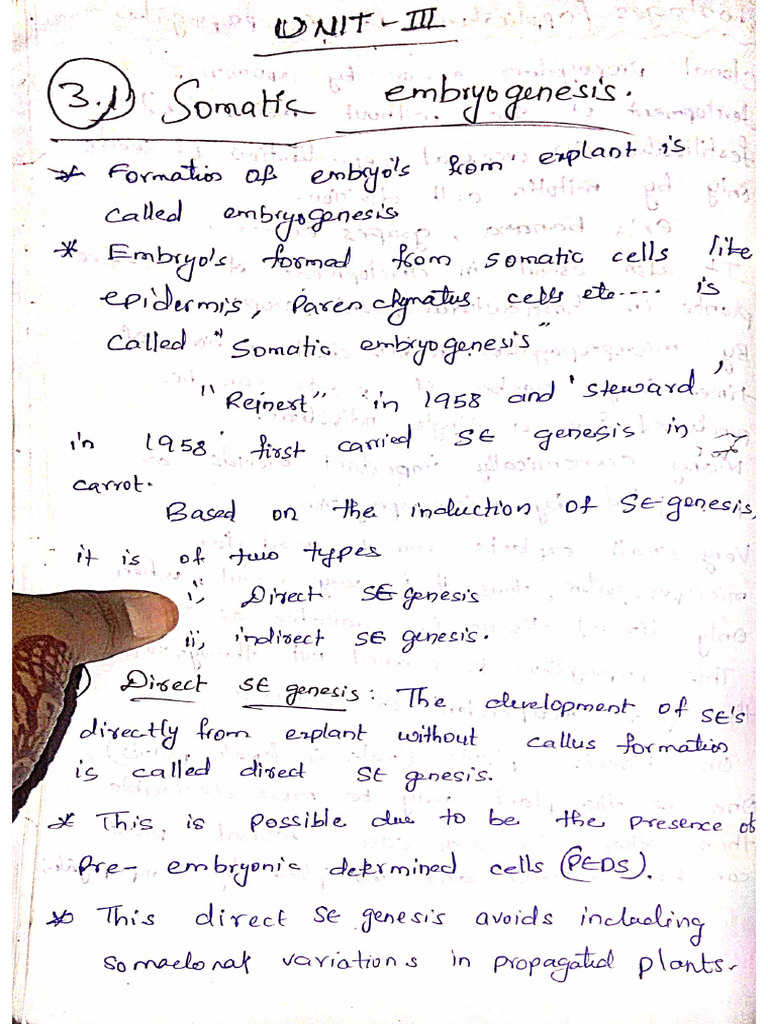 UNIT-III
3.1) Somatic embryogenesis.
* Formation of embryo's from explant is
called embryogenesis
* Embryo's formed from somatic cells like
epidermis, Parenchymatus cells etc.... is
called "Somatic embryogenesis"
"Reinert" in 1958 and 'Steward'
in 1958 first carried SE genesis in
carrot.
Based on the induction of SE genesis,
it is of two types
i, Direct SE genesis
ii, indirect SE genesis.
) Direct SE genesis: The development of SE's
directly from explant without callus formation
is called direct SE genesis.
* This is possible due to be the presence of
Pre-embryonic determined cells (PEDS).
* This direct SE genesis avoids including
somaclonal variations in propagated plants.